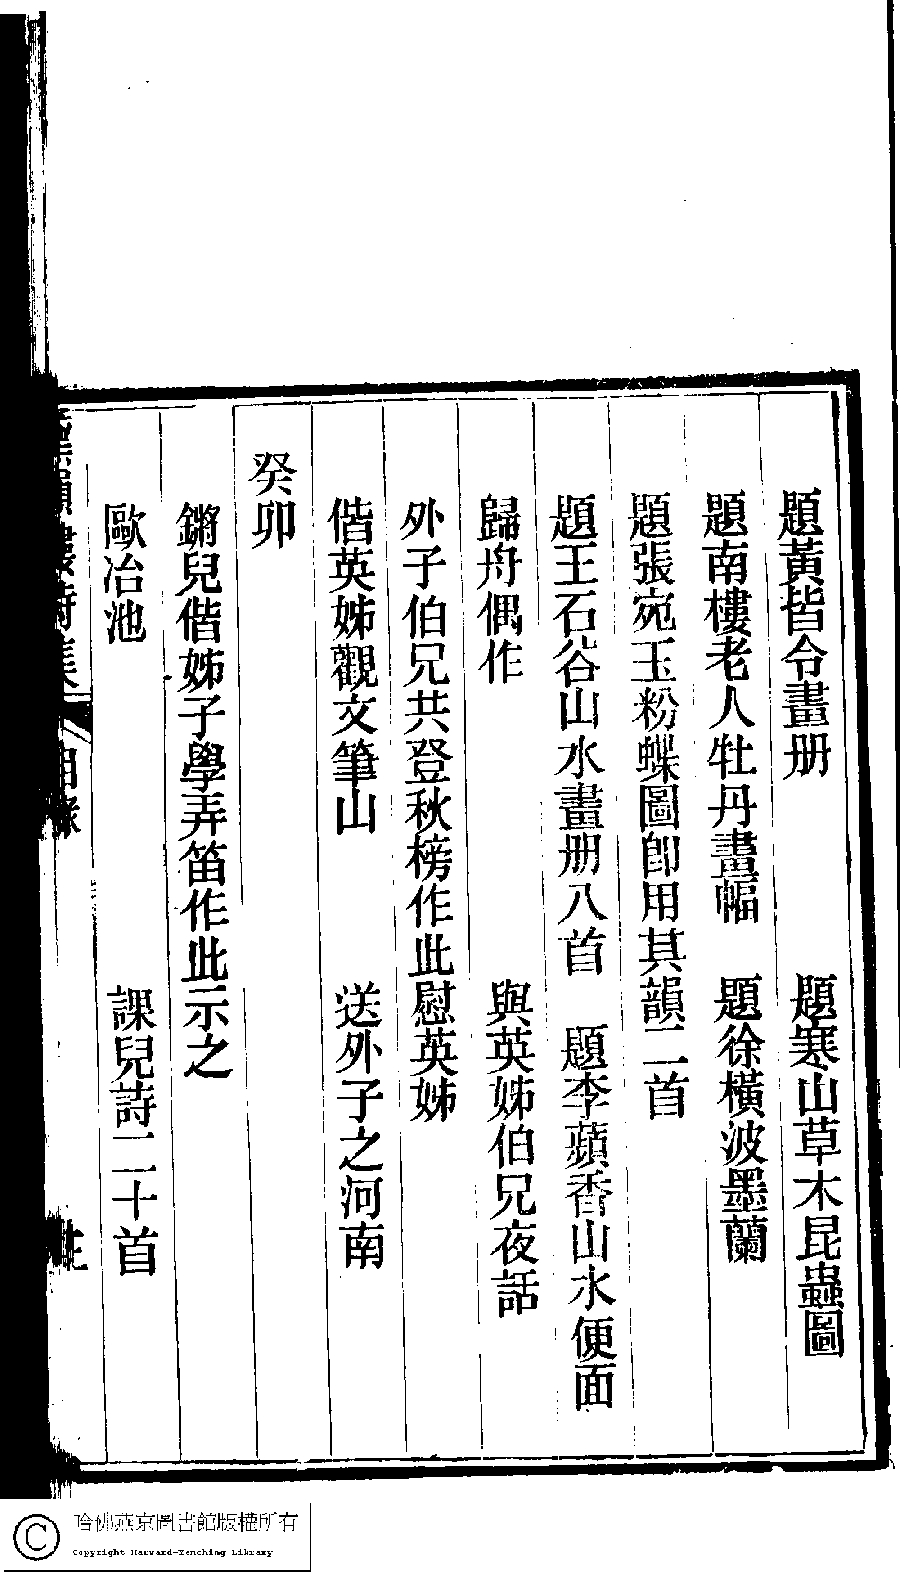 題黃皆令畫册　題寒山草木昆蟲圖
題南樓老人牡丹畫幅　題徐橫波墨蘭
題張宛玉粉蝶圖卽用其韻二首
題王石谷山水畫册八首　題李蘋香山水便面
歸舟偶作　與英姊伯兄夜話
外子伯兄共登秋榜作此慰英姊
偕英姊觀文筆山　送外子之河南
癸卯
鏘兒偕姊子學弄笛作此示之
歐冶池　課兒詩二十首
詩集　目錄
哈佛燕京圖書館版權所有
Copyright Harvard-Yenching Library